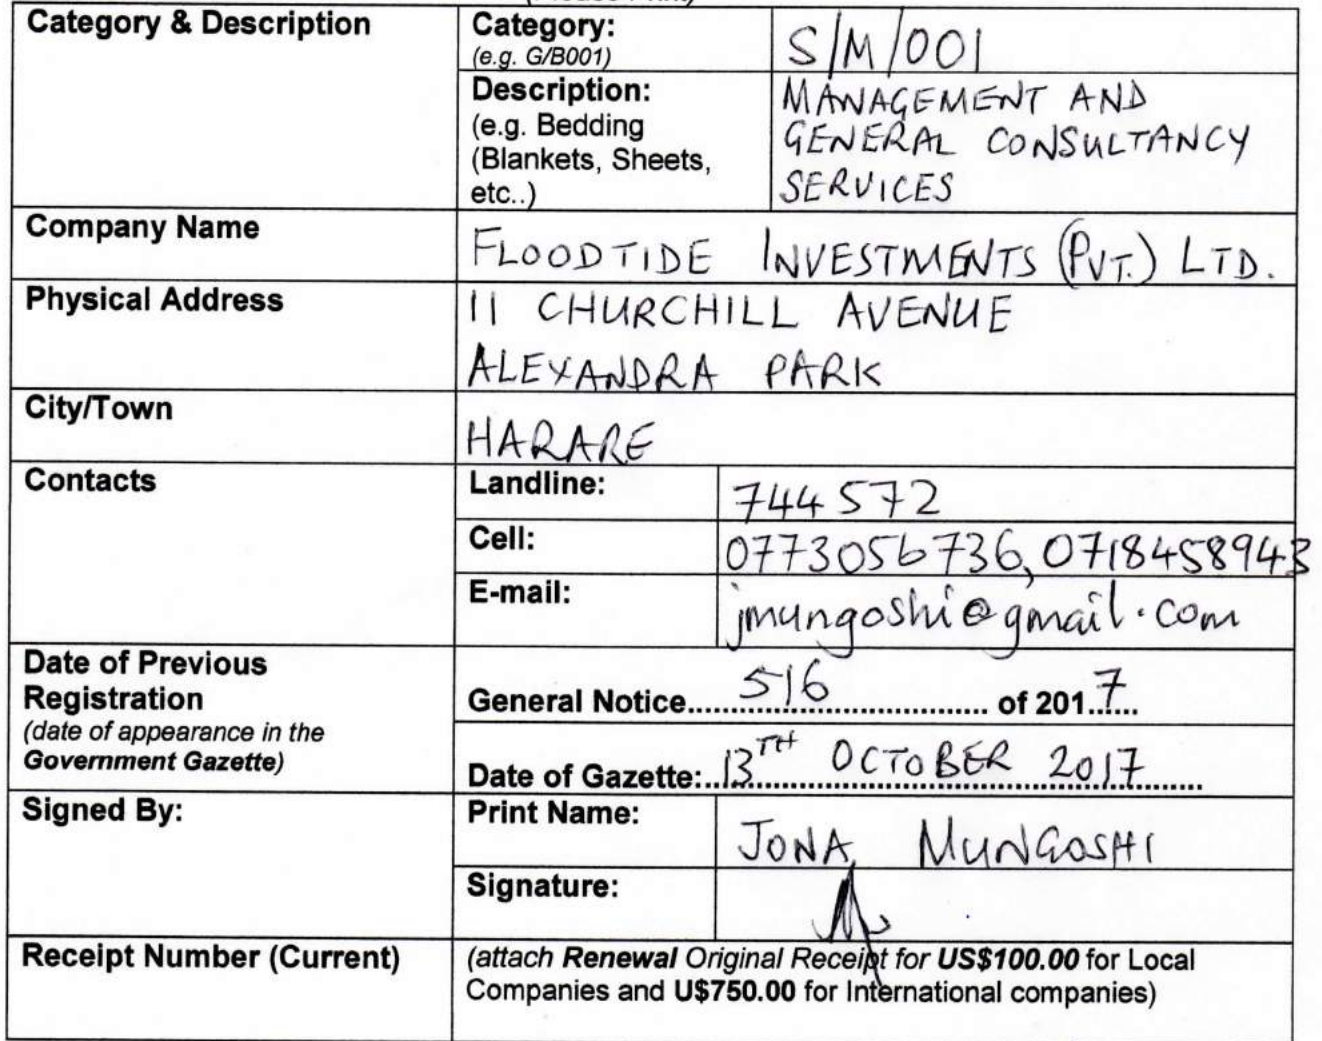 Category & Description
Category:
(e.g. G/B001)
S/M/001
Description:
(e.g. Bedding
(Blankets, Sheets,
etc..)
MANAGEMENT AND
GENERAL CONSULTANCY
SERVICES
Company Name
FLOODTIDE INVESTMENTS (PVT.) LTD.
Physical Address
11 CHURCHILL AVENUE
ALEXANDRA PARK
City/Town
HARARE
Contacts
Landline:
744572
Cell:
0773056736, 0718458943
E-mail:
jmungoshi@gmail.com
Date of Previous
Registration
(date of appearance in the
Government Gazette)
General Notice.....516..... of 201.7...
Date of Gazette:..13TH OCTOBER 2017.....
Signed By:
Print Name:
JONA MUNGOSHI
Signature:
Receipt Number (Current)
(attach Renewal Original Receipt for US$100.00 for Local
Companies and U$750.00 for International companies)